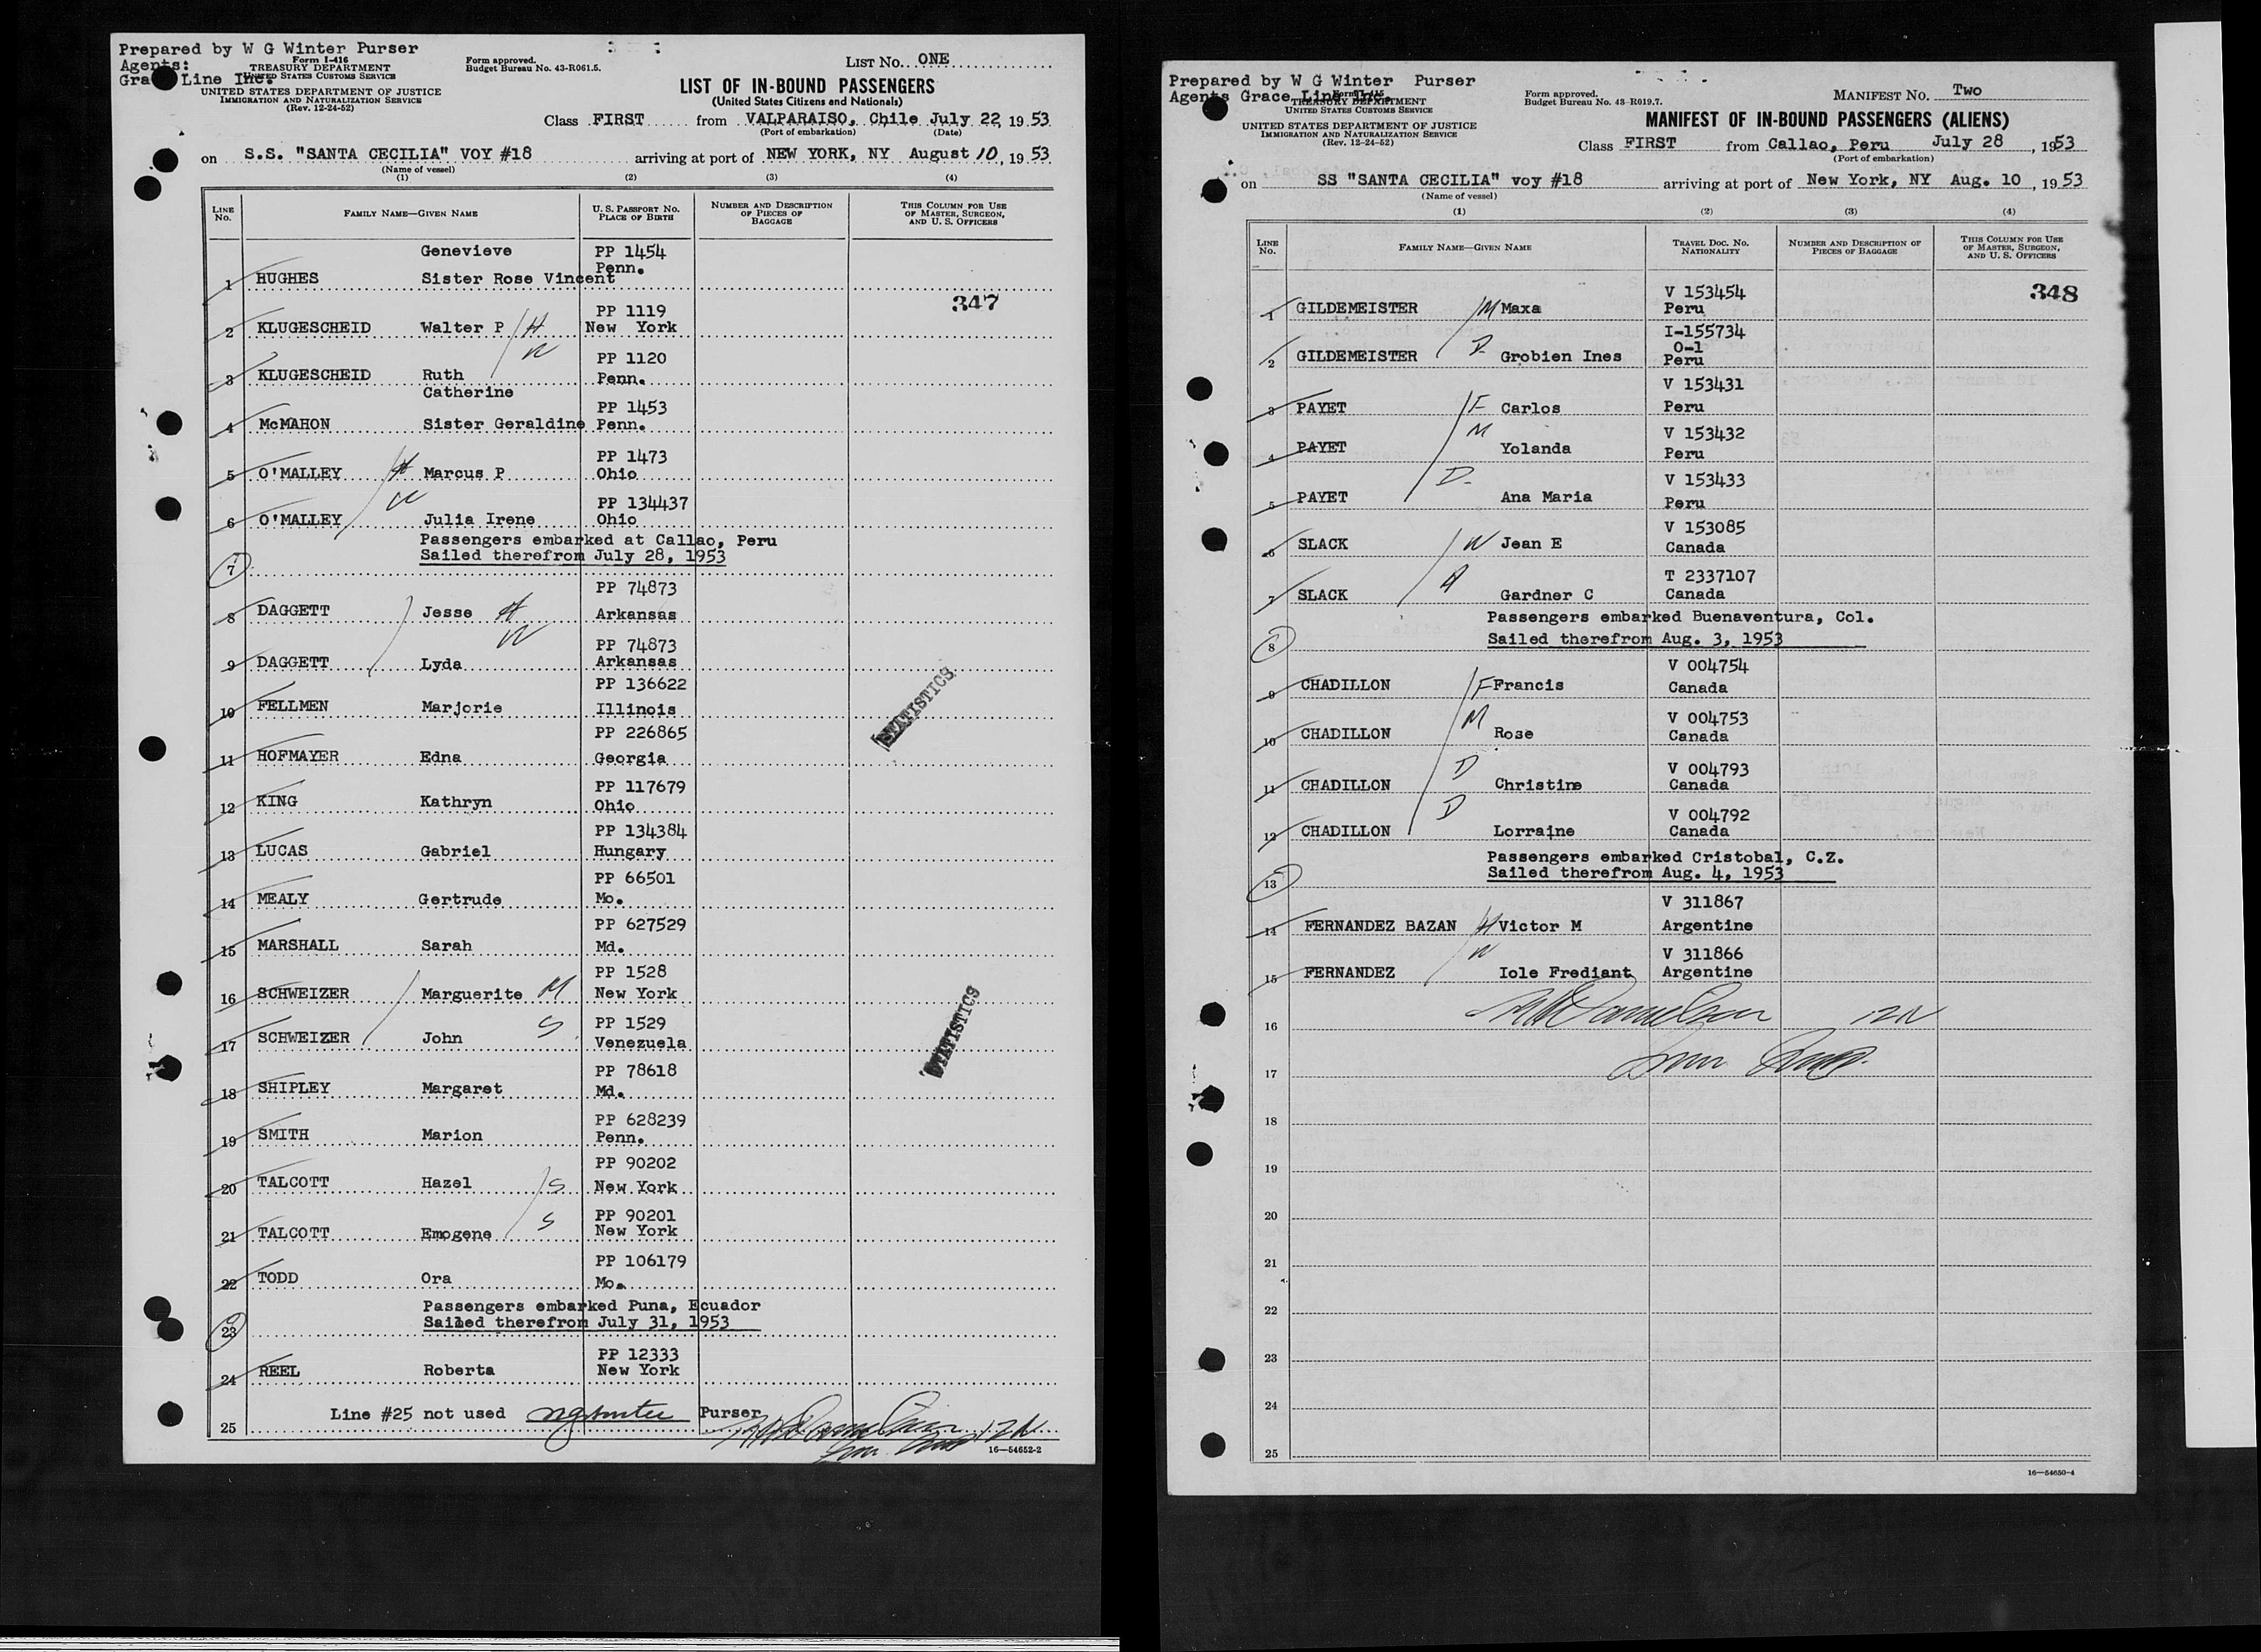 Prepared by W G Winter Purser
Agents:
Grace Line Inc.
Form I-416
TREASURY DEPARTMENT
UNITED STATES CUSTOMS SERVICE
UNITED STATES DEPARTMENT OF JUSTICE
IMMIGRATION AND NATURALIZATION SERVICE
(Rev. 12-24-52)
Form approved.
Budget Bureau No. 43-R061.5.
LIST No. ONE
LIST OF IN-BOUND PASSENGERS
(United States Citizens and Nationals)
Class FIRST from VALPARAISO, Chile July 22, 1953
(Port of embarkation) (Date)
on S.S. "SANTA CECILIA" VOY #18 arriving at port of NEW YORK, NY August 10, 1953
(Name of vessel)
(1) (2) (3) (4)
LINE No. FAMILY NAME—GIVEN NAME U. S. PASSPORT NO. PLACE OF BIRTH NUMBER AND DESCRIPTION OF PIECES OF BAGGAGE THIS COLUMN FOR USE OF MASTER, SURGEON, AND U. S. OFFICERS
Genevieve PP 1454
Penn.
1 HUGHES Sister Rose Vincent
347
PP 1119
2 KLUGESCHEID Walter P H New York
W
PP 1120
3 KLUGESCHEID Ruth Penn.
Catherine
PP 1453
4 McMAHON Sister Geraldine Penn.
PP 1473
5 O'MALLEY H Marcus P Ohio
W
PP 134437
6 O'MALLEY Julia Irene Ohio
Passengers embarked at Callao, Peru
7 Sailed therefrom July 28, 1953
PP 74873
8 DAGGETT Jesse H Arkansas
W
PP 74873
9 DAGGETT Lyda Arkansas
PP 136622
10 FELLMEN Marjorie Illinois
STATISTICS
PP 226865
11 HOFMAYER Edna Georgia
PP 117679
12 KING Kathryn Ohio
PP 134384
13 LUCAS Gabriel Hungary
PP 66501
14 MEALY Gertrude Mo.
PP 627529
15 MARSHALL Sarah Md.
PP 1528
16 SCHWEIZER Marguerite M New York
STATISTICS
PP 1529
17 SCHWEIZER John S Venezuela
PP 78618
18 SHIPLEY Margaret Md.
PP 628239
19 SMITH Marion Penn.
PP 90202
20 TALCOTT Hazel S New York
PP 90201
21 TALCOTT Emogene S New York
PP 106179
22 TODD Ora Mo.
Passengers embarked Puna, Ecuador
23 Sailed therefrom July 31, 1953
PP 12333
24 REEL Roberta New York
25 Line #25 not used Purser
16—54652-2
Prepared by W G Winter Purser
Agents Grace Line Inc.
TREASURY DEPARTMENT
UNITED STATES CUSTOMS SERVICE
UNITED STATES DEPARTMENT OF JUSTICE
IMMIGRATION AND NATURALIZATION SERVICE
(Rev. 12-24-52)
Form approved.
Budget Bureau No. 43-R019.7.
MANIFEST No. Two
MANIFEST OF IN-BOUND PASSENGERS (ALIENS)
Class FIRST from Callao, Peru July 28, 1953
(Port of embarkation)
on SS "SANTA CECILIA" voy #18 arriving at port of New York, NY Aug. 10, 1953
(Name of vessel)
(1) (2) (3) (4)
LINE No. FAMILY NAME—GIVEN NAME TRAVEL DOC. NO. NATIONALITY NUMBER AND DESCRIPTION OF PIECES OF BAGGAGE THIS COLUMN FOR USE OF MASTER, SURGEON, AND U. S. OFFICERS
V 153454 348
1 GILDEMEISTER M Maxa Peru
I-155734
O-1
2 GILDEMEISTER D Grobien Ines Peru
V 153431
3 PAYET F Carlos Peru
V 153432
4 PAYET M Yolanda Peru
V 153433
5 PAYET D Ana Maria Peru
V 153085
6 SLACK W Jean E Canada
T 2337107
7 SLACK H Gardner C Canada
Passengers embarked Buenaventura, Col.
8 Sailed therefrom Aug. 3, 1953
V 004754
9 CHADILLON F Francis Canada
V 004753
10 CHADILLON M Rose Canada
V 004793
11 CHADILLON D Christine Canada
V 004792
12 CHADILLON D Lorraine Canada
Passengers embarked Cristobal, C.Z.
13 Sailed therefrom Aug. 4, 1953
V 311867
14 FERNANDEZ BAZAN H Victor M Argentine
V 311866
15 FERNANDEZ W Iole Frediant Argentine
16
17
18
19
20
21
22
23
24
25
16—54650-4